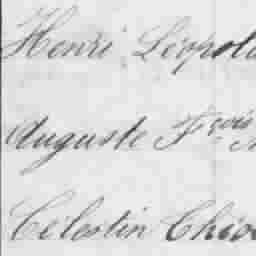 Henri Léopold
Auguste Fçois
Célestin